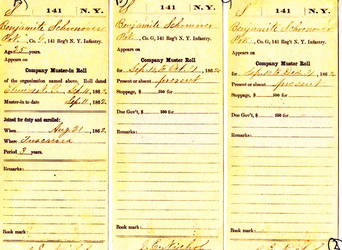 S 141 N.Y.
Benjamite Schoonover
Pvt., Co. G, 141 Reg't N.Y. Infantry.
Age 25 years.
Appears on
Company Muster-in Roll
of the organization named above. Roll dated
Sept 11, 1862
Muster-in to date Sept 11, 1862
Joined for duty and enrolled:
When Aug 21, 1862
Where Tuscarora
Period 3 years.
Remarks:
Book mark:
S 141 N.Y.
Benjamite Schoonover
Pvt., Co. G, 141 Reg't N.Y. Infantry.
Appears on
Company Muster Roll
for 1862
Present or absent present
Stoppage, $ 100 for
Due Gov't, $ 100 for
Remarks:
Book mark:
S 141 N.Y.
Benjamite Schoonover
Pvt., Co. G, 141 Reg't N.Y. Infantry.
Appears on
Company Muster Roll
for 1862
Present or absent present
Stoppage, $ 100 for
Due Gov't, $ 100 for
Remarks:
Book mark: